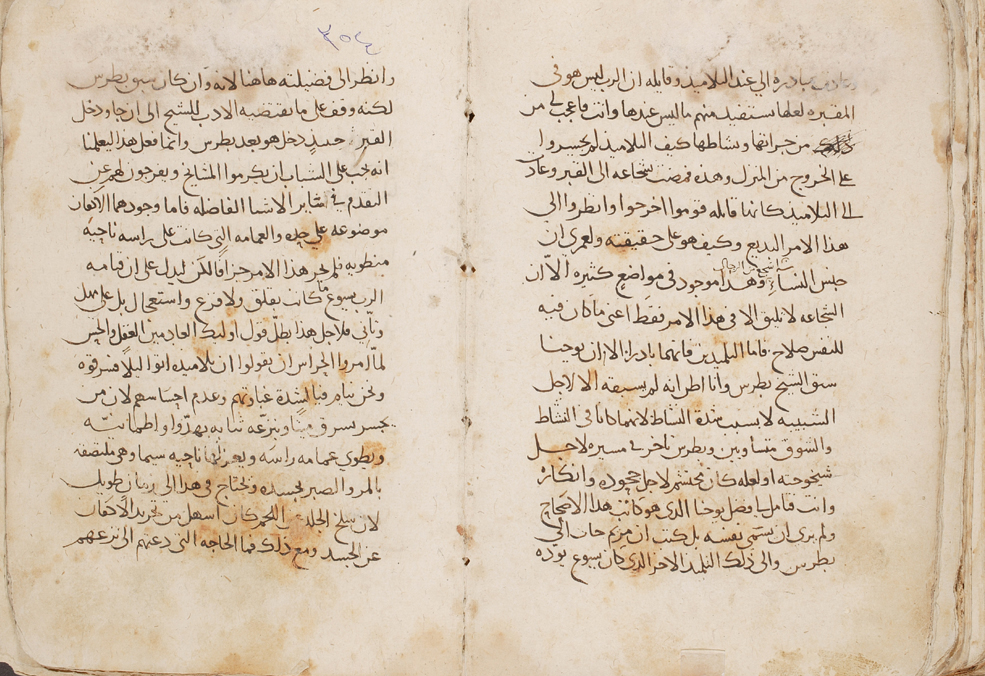 بادره الي عند التلاميذ وقايله ان الرب ليس هو في
المقبره لعلها تستفيد منهم ما ليس عندها وانت فاعجب لي من
من جراتها ونشاطها كيف التلاميذ لم يجسروا
على الخروج من المنزل وهذه فمضت بشجاعه الى القبر وعادت
الى التلاميذ كانها قايله قوموا اخرجوا وانظروا الى
هذا الامر البديع وكيف هو على حقيقته ولعمري ان
جنس النساء اشجع من الرجال وهذا موجود في مواضع كثيره الا ان
الشجاعه لا تليق الا في هذا الامر فقط اعنى ما كان فيه
للنفس صلاح فاما التلميذين فانهما بادرا الا ان يوحنا
سبق الشيخ بطرس وانا اظن انه لم يسبقه الا لاجل
الشبيبه لا بسبب شدة النشاط لانهما كانا في النشاط
والشوق متساويين وبطرس تاخر في مسيره لاجل
شيخوخته او لعله كان محتشم لاجل جحوده وانكاره
وانت فتامل فضل يوحنا الذي هو كاتب هذا الاصحاح
ولم يرى ان يسمي نفسه بل كتب ان مريم جات الي
بطرس والى ذلك التلميذ الاخر الذي كان يسوع يوده
وانظر الى فضيلته هاهنا لانه وان كان سبق بطرس
لكنه وقف على ما تقتضيه الادب للشيخ الى ان جا ودخل
القبر حينيذ دخل هو بعد بطرس وانما فعل هذا ليعلمنا
انه يجب على الشباب ان يكرموا المشايخ ويفرجون لهم عن
التقدم في ساير الاشيا الفاضله فاما وجودهما الاكفان
موضوعه على حده والعمامه التي كانت على راسه ناحيه
منطويه فلم يجر هذا الامر جزافا لكن ليدل على ان قيامه
الرب يسوع ما كانت بقلق ولا فزع واستعجال بل على مهل
وتاني فلاجل هذا بطل قول اوليك العادمين العقل والحس
لما امروا الحراس ان يقولوا ان تلاميذه اتوا ليلا فسرقوه
ونحن نيام فيا لشدة غباوتهم وعدم احساسهم لان من
يجسر يسرق ميتا وينزعه ثيابه بهدوا واطمانيه
ويطوي عمامه راسه ويعزلها ناحيه سيما وهي ملتصقه
بالمر والصبر بجسده ويحتاج في هذا الى زمان طويل
لان سلخ الجلد عن اللحم كان اسهل من تجريد الاكفان
عن الجسد ومع ذلك فما الحاجه التي دعتهم الى نزعهم